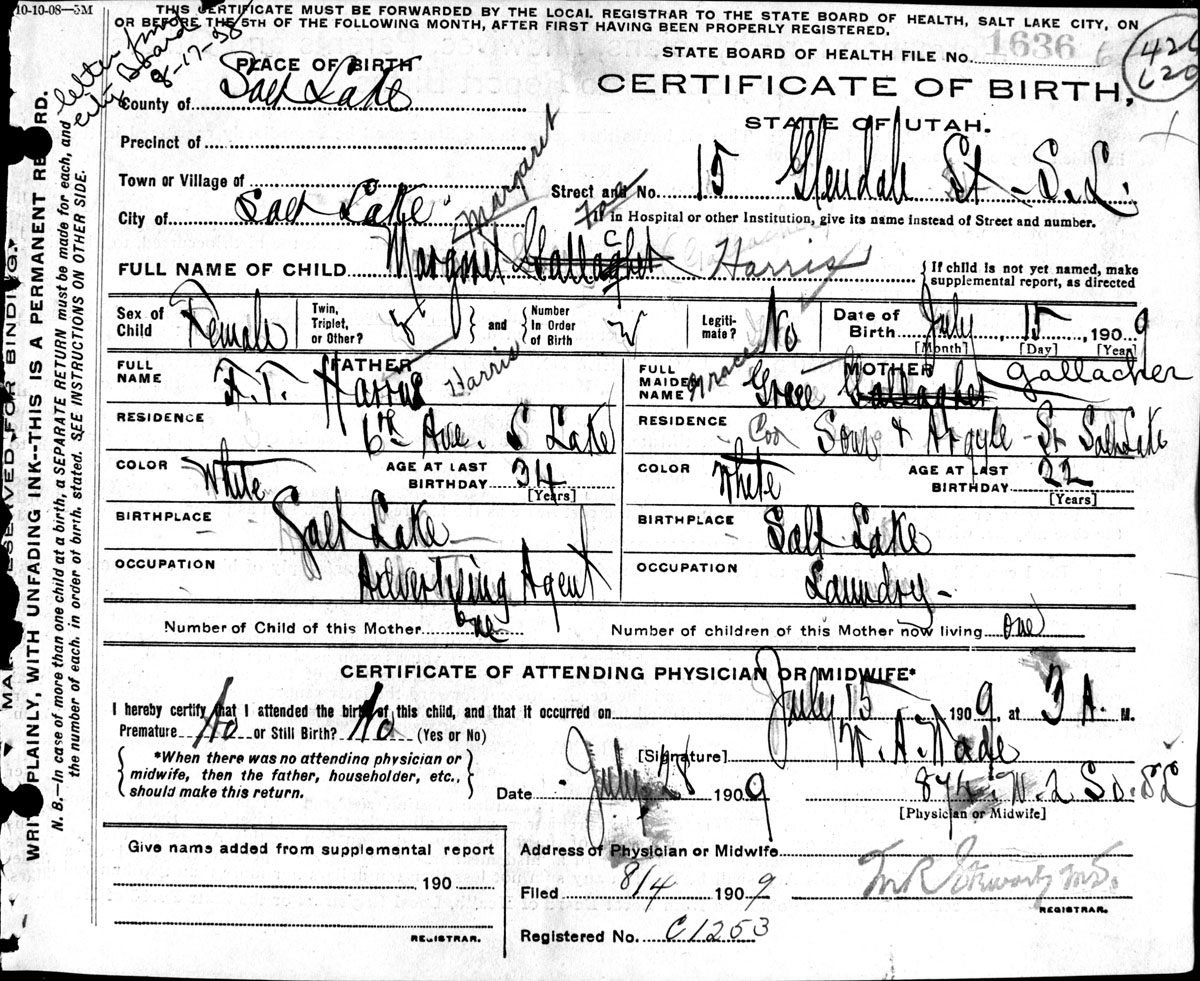 10-10-08—3M
THIS CERTIFICATE MUST BE FORWARDED BY THE LOCAL REGISTRAR TO THE STATE BOARD OF HEALTH, SALT LAKE CITY, ON
OR BEFORE THE 5TH OF THE FOLLOWING MONTH, AFTER FIRST HAVING BEEN PROPERLY REGISTERED.
letter from
city board
8-17-38
STATE BOARD OF HEALTH FILE No. 1636
426
620
PLACE OF BIRTH
CERTIFICATE OF BIRTH,
STATE OF UTAH.
County of Salt Lake
Precinct of
Town or Village of
Street and No. 15 Glendale St - S.L.
City of Salt Lake
If in Hospital or other Institution, give its name instead of Street and number.
Margaret
FULL NAME OF CHILD Margret Gallagher Harris
{If child is not yet named, make
supplemental report, as directed
Sex of Child Female
Twin, Triplet, or Other? } and { Number In Order of Birth
Legiti-mate? No
Date of Birth July 15, 1909
[Month] [Day] [Year]
FATHER
FULL NAME F. T. Harris Harris
RESIDENCE 6th Ave. S Lake
COLOR White
AGE AT LAST BIRTHDAY 34
[Years]
BIRTHPLACE Salt Lake
OCCUPATION Advertising Agent
MOTHER
FULL MAIDEN NAME Grace Grace Gallagher Gallacher
RESIDENCE Cor & Argyle - St Salt Lake
COLOR White
AGE AT LAST BIRTHDAY 22
[Years]
BIRTHPLACE Salt Lake
OCCUPATION Laundry -
Number of Child of this Mother one
Number of children of this Mother now living one
CERTIFICATE OF ATTENDING PHYSICIAN OR MIDWIFE*
I hereby certify that I attended the birth of this child, and that it occurred on July 15 1909, at 3 A. M.
Premature No or Still Birth? No (Yes or No)
{*When there was no attending physician or
midwife, then the father, householder, etc.,
should make this return.}
[Signature] W. A. Wade
Date July 1909
874. W. 2 So. SL
[Physician or Midwife]
Address of Physician or Midwife
Filed 8/4 1909
REGISTRAR.
Registered No. C1253
Give name added from supplemental report
190
REGISTRAR.
WRITE PLAINLY, WITH UNFADING INK--THIS IS A PERMANENT RECORD.
N. B.—In case of more than one child at a birth, a SEPARATE RETURN must be made for each, and
the number of each, in order of birth, stated. SEE INSTRUCTIONS ON OTHER SIDE.